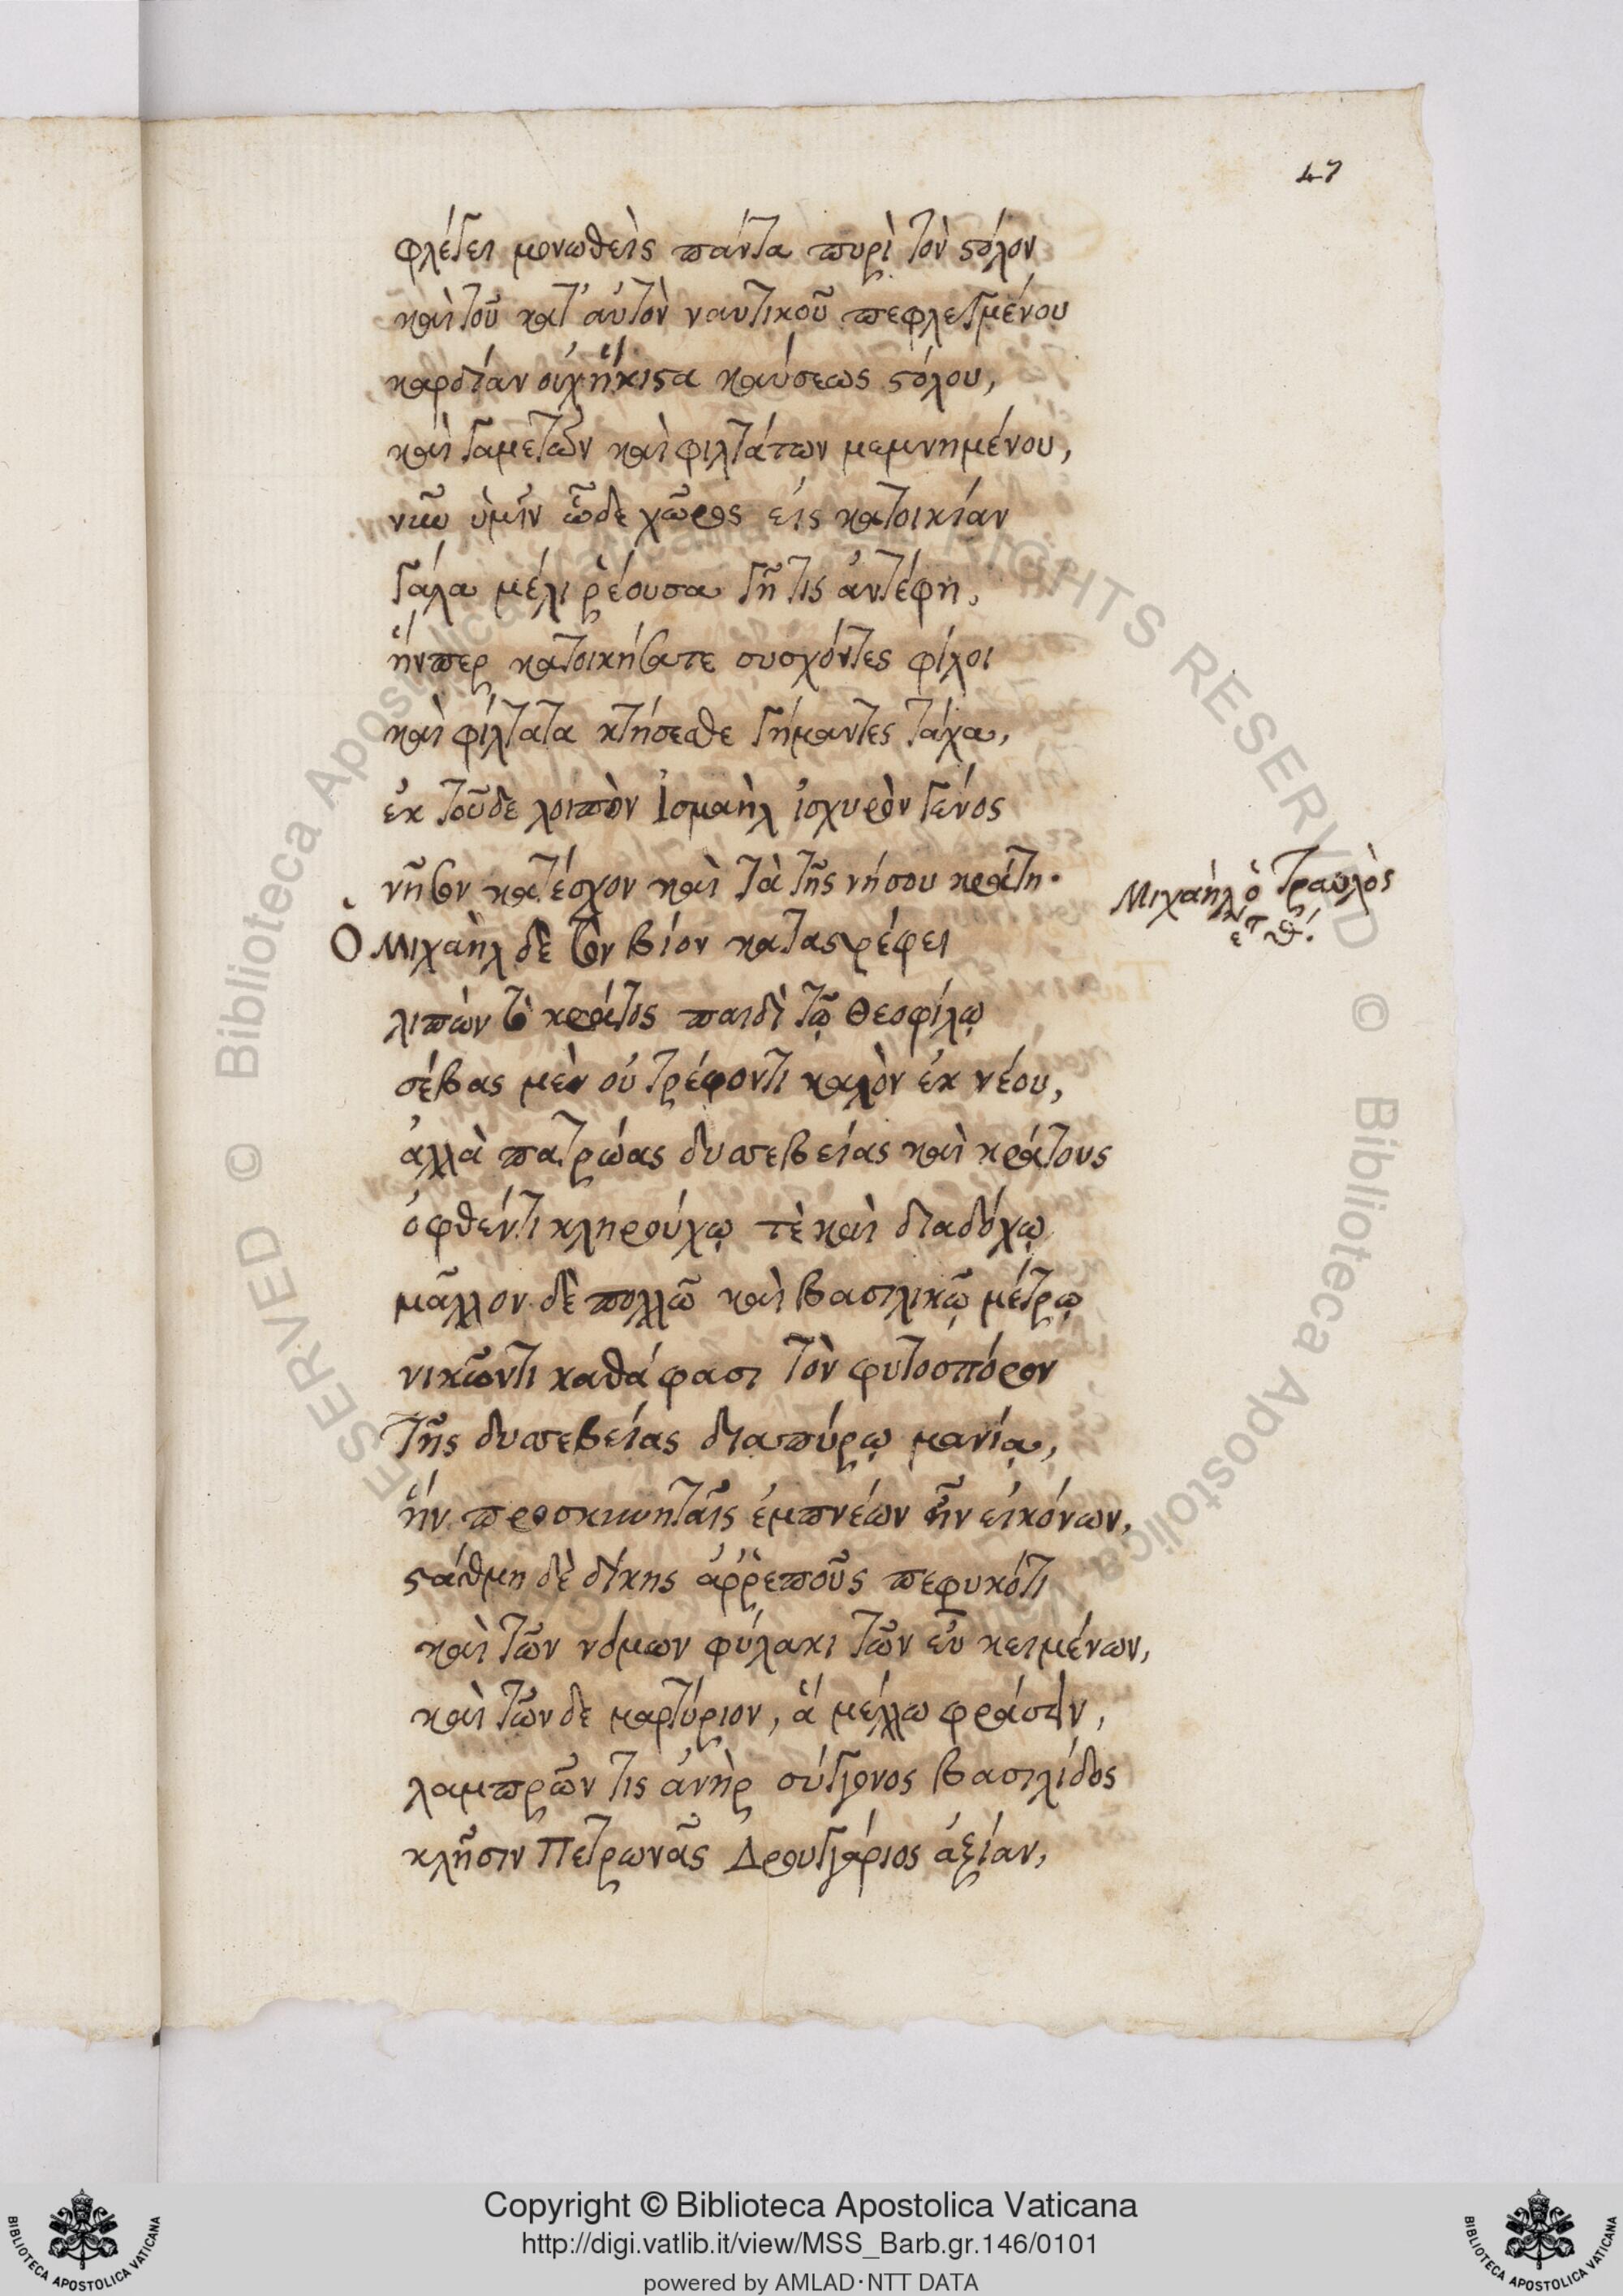 47
φλέγει μονωθεὶς πάντα πυρὶ τὸν στόλον
καὶ τοῦ κατ' αὐτὸν ναυτικοῦ πεφλεγμένου
καρδίαν οὐχ ἥκιστα καύσεως στόλου,
καὶ γαμετῶν καὶ φιλτάτων μεμνημένου,
νῦν ὑμῖν ὧδε χῶρος εἰς κατοικίαν
γάλα μέλι ῥέουσα γῆ τις ἀντέφη,
ἥνπερ κατοικήσατε συσχόντες φίλοι
καὶ φίλτατα κτήσεσθε γήμαντες τάχα,
ἐκ τοῦδε λοιπὸν Ἰσμαὴλ ἰσχυρὸν γένος
νῆσον κατέσχον καὶ τὰ τῆς νήσου κράτη.
Μιχαήλ ὁ τραυλὸς
ἔτ θ'.
Ὁ Μιχαὴλ δὲ τὸν βίον καταστρέφει
λιπὼν τὸ κράτος παιδὶ τῷ Θεοφίλῳ
σέβας μὲν οὐ τρέφοντι καλὸν ἐκ νέου,
ἀλλὰ πατρώας δυσσεβείας καὶ κράτους
ὀφθέντι κληρούχῳ τὲ καὶ διαδόχῳ
μᾶλλον δὲ πολλῶ καὶ βασιλικῷ μέτρῳ
νικῶντι καθά φασι τὸν φυτοσπόρον
τῆς δυσσεβείας διαπύρῳ μανίᾳ,
ἣν προσκυνηταῖς ἐμπνέων ἦν εἰκόνων,
στάθμη δὲ δίκης ἀῤῥεποῦς πεφυκότι
καὶ τῶν νόμων φύλακι τῶν εὖ κειμένων,
καὶ τῶν δε μαρτύριον, ἃ μέλλω φράσειν,
λαμπρῶν τις ἀνὴρ σύγγονος βασιλίδος
κλῆσιν Πετρωνᾶς Δρουγγάριος ἀξίαν,
Copyright © Biblioteca Apostolica Vaticana
http://digi.vatlib.it/view/MSS_Barb.gr.146/0101
powered by AMLAD·NTT DATA